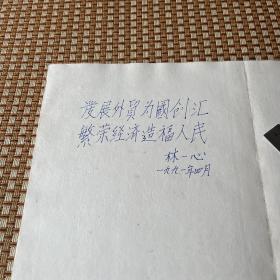 发展外貿为國创汇
繁荣经濟造福人民
林一心
一九九一年四月